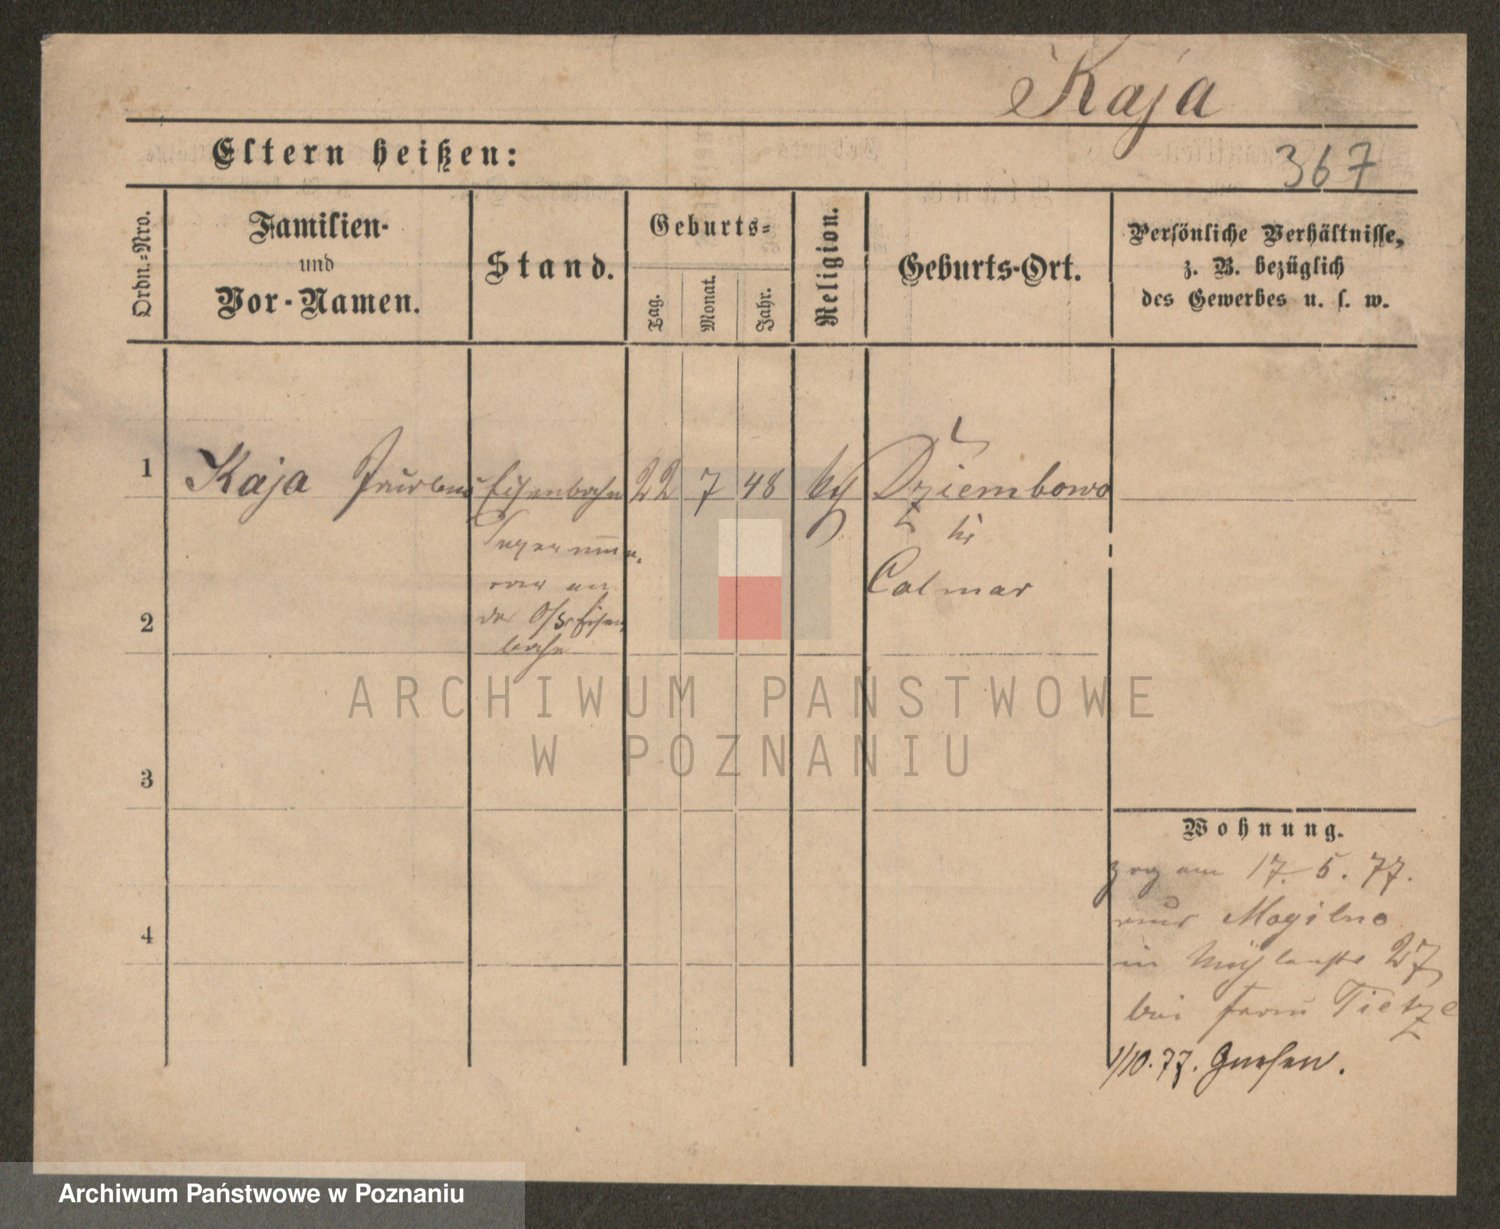 Kaja
Eltern heißen:
367
Ordn.-Nro.
Familien-
und
Vor-Namen.
Stand.
Geburts-
Tag.
Monat.
Jahr.
Religion.
Geburts-Ort.
Persönliche Verhältnisse,
z. B. bezüglich
des Gewerbes u. s. w.
1 Kaja Eisenbahn 22 7 48 Dziembowo
bei
an Colmar
2 der Eisen
bahn
ARCHIWUM PAŃSTWOWE
W POZNANIU
3
Wohnung.
zog am 17. 5. 77.
aus Mogilno
4
in 27
bei Frau Tietze
1/10. 77. Gnesen.
Archiwum Państwowe w Poznaniu